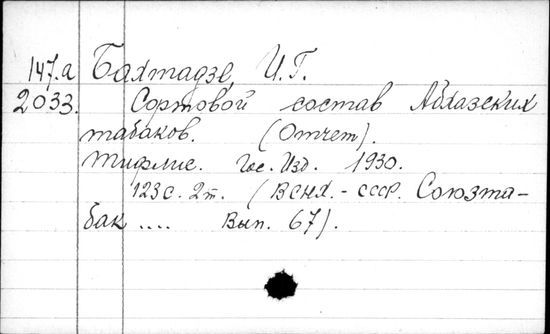 147.а Бахтадзе, И.Г.
2033. Сортовой состав Абхазских
табаков. (Отчет).
Тифлис. Гос. Изд. 1930.
123 с. 2т. (ВСНХ. - СССР. Союзта-
бак .... Вып. 67).